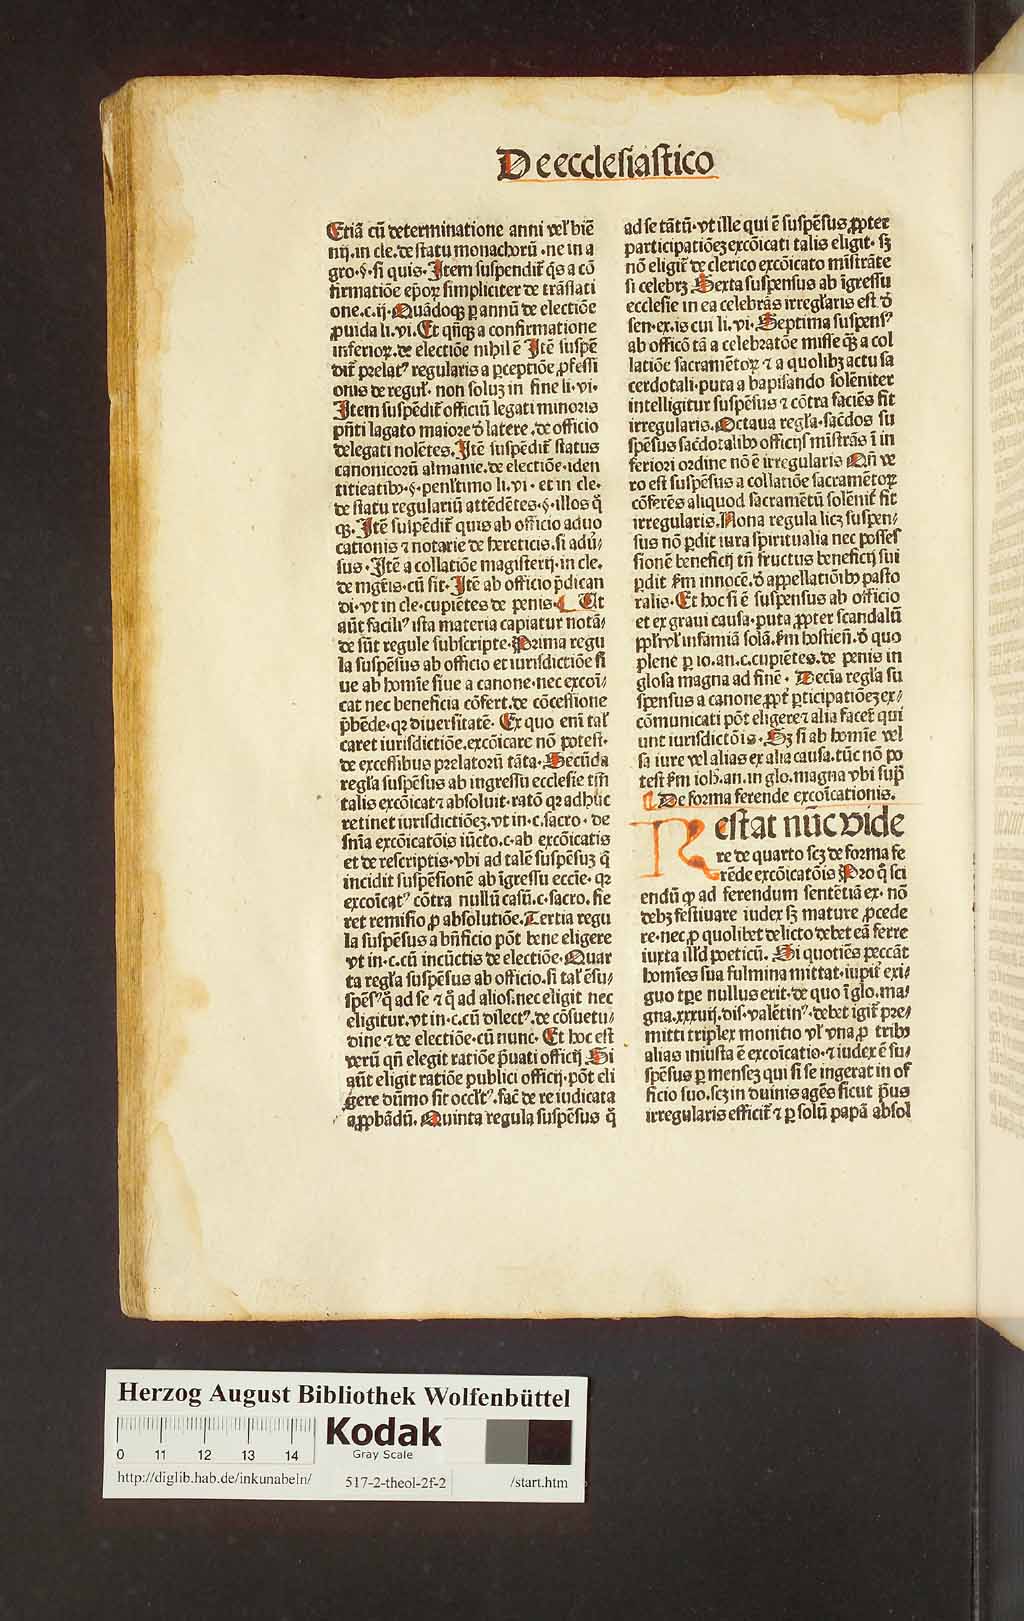 De ecclesiastico
Etiã cũ determinatione anni vel biẽ
nij. in cle. de statu monachorũ. ne in a
gro. §. si quis. Item suspendit᷑ q̃s a cõ
firmatiõe ep̃oꝝ simpliciter de trãslati
one. c. ij. Quãdoqꝫ ꝑ annũ de electiõe
ꝓuida li. vi. Et qñqꝫ a confirmatione
inferioꝝ. de electiõe nihil ẽ Itẽ suspẽ
dit᷑ prelatꝰ regularis a ꝑceptiõe ꝓfessi
onis de regul᷑. non soluꝫ in fine li. vi.
Item suspẽdit᷑ officiũ legati minoris
pñti lagato maiore d̕ latere. de officio
delegati nolẽtes. Itẽ suspẽdit᷑ status
canonicorũ almanie. de electiõe. iden
titieatibꝰ. §. penl̕timo li. vi. et in cle.
de statu regulariũ attẽdẽtes. §. illos q̃
qꝫ. Itẽ suspẽdit᷑ quis ab officio aduo
cationis ⁊ notarie de hereticis. si adũ⸗
sus. Itẽ a collatiõe magisterij. in cle.
de mgr̃is. cũ sit. Itẽ ab officio p̃dican
di. vt in cle. cupiẽtes de penis. ¶ Et
aũt faciliꝰ ista materia capiatur notã⸗
de sũt regule subscripte. Prima regu
la suspẽsus ab officio et iurisdictiõe si
ue ab homĩe siue a canone. nec excoĩ⸗
cat nec beneficia cõfert. de cõcessione
p̃bẽde. qꝛ diuersitatẽ. Ex quo enĩ tal᷑
caret iurisdictiõe. excõicare nõ potest.
de excessibus prelatorũ tãta. Secũda
regl̕a suspẽsus ab ingressu ecclesie tm̃
talis excõicat ⁊ absoluit. ratõ qꝛ adhuc
retinet iurisdictiõeꝫ. vt in. c. sacro. de
sñia excõicatõis iũcto. c. ab excõicatis
et de rescriptis. vbi ad talẽ suspẽsuꝫ q̃
incidit suspẽsionẽ ab ĩgressu eccĩe. qꝛ
excoĩcatꝰ cõtra nullũ casũ. c. sacro. fie
ret remisio ꝓ absolutiõe. Tertia regu
la suspẽsus a bñficio põt bene eligere
vt in. c. cũ incũctis de electiõe. Quar
ta regl̕a suspẽsus ab officio. si tal᷑ ẽ su⸗
spẽsꝰ q̃ ad se ⁊ q̃ ad alios. nec eligit nec
eligitur. vt in. c. cũ dilectꝰ. de cõsuetu⸗
dine ⁊ de electiõe. cũ nunc. Et hoc est
verũ qñ elegit ratiõe p̃uati officij Si
aũt eligit ratiõe publici officij. põt eli
gere dũmo sit occl̕tꝰ. fac̃ de re iudicata
aꝓbãdũ. Quinta regula suspẽsus q̃
ad se tãtũ. vt ille qui ẽ suspẽsus ꝓpter
participatiõeꝫ excõicati talis eligit. sꝫ
nõ eligit᷑ de clerico excõicato mĩstrãte
si celebrꝫ Sexta suspensus ab ĩgressu
ecclesie in ea celebrãs irregl̕aris est d̕
sen. ex. is cui li. vi. Septima suspensꝰ
ab officõ tã a celebratõe misse qꝫ a col
latiõe sacramẽtoꝝ ⁊ a quolibꝫ actu sa
cerdotali. puta a bapisando solẽniter
intelligitur suspẽsus ⁊ cõtra faciẽs fit
irregularis. Octaua regl̕a. sac̃dos su
spẽsus sac̃dotalibꝰ officijs mĩstrãs ĩ in
feriori ordine nõ ẽ irregularis Qñ ve
ro est suspẽsus a collatiõe sacramẽtoꝝ
cõferẽs aliquod sacramẽtũ solẽnit᷑ fit
irregularis. Nona regula licꝫ suspen⸗
sus nõ ꝑdit iura spiritualia nec posses
sionẽ beneficij tñ fructus beneficij sui
ꝑdit ẜm innocẽ. d̕ appellatiõibꝰ pasto
ralis. Et hoc si ẽ suspẽsus ab officio
et ex graui causa. puta ꝓpter scandalũ
ꝓpl̕r vl̕ infamiã solã. ẜm hostieñ. d̕ quo
plene ꝑ io. an. c. cupiẽtes. de penis in
glosa magna ad finẽ. Decĩa regl̕a su
spensus a canone ꝓpt᷑ ꝑticipatiõeꝫ ex⸗
cõmunicati põt eligere ⁊ alia facer᷑ qui
unt iurisdictõis. Sꝫ si ab homĩe vel
sa iure vel alias ex alia causa. tũc nõ po
test ẜm ioh̃. an. in glo. magna vbi sup̃
¶ De forma ferende excoĩcationis.
Restat nũc vide
re de quarto scꝫ de forma fe
rẽde excõicatõis Pro q̃ sci
endũ ꝙ ad ferendum sentẽtiã ex. nõ
debꝫ festiuare iudex sꝫ mature ꝓcede
re. nec ꝓ quolibet delicto debet eã ferre
iuxta ill̕d poeticũ. Si quotiẽs peccãt
homĩes sua fulmina mittat. iupit᷑ exi⸗
guo tꝑe nullus erit. de quo ĩ glo. ma⸗
gna. xxxvij. dis. valẽtinꝰ. debet igit᷑ pre⸗
mitti triplex monitio vl̕ vna ꝓ tribꝰ
alias iniusta ẽ excoĩcatio. ⁊ iudex ẽ su⸗
spẽsus ꝑ menseꝫ qui si se ingerat in of
ficio suo. scꝫ in duinis agẽs sicut p̃us
irregularis efficit᷑ ⁊ ꝑ solũ papã absol
Herzog August Bibliothek Wolfenbüttel
0 11 12 13 14
Kodak
Gray Scale
http://diglib.hab.de/inkunabeln/ 517-2-theol-2f-2 /start.htm